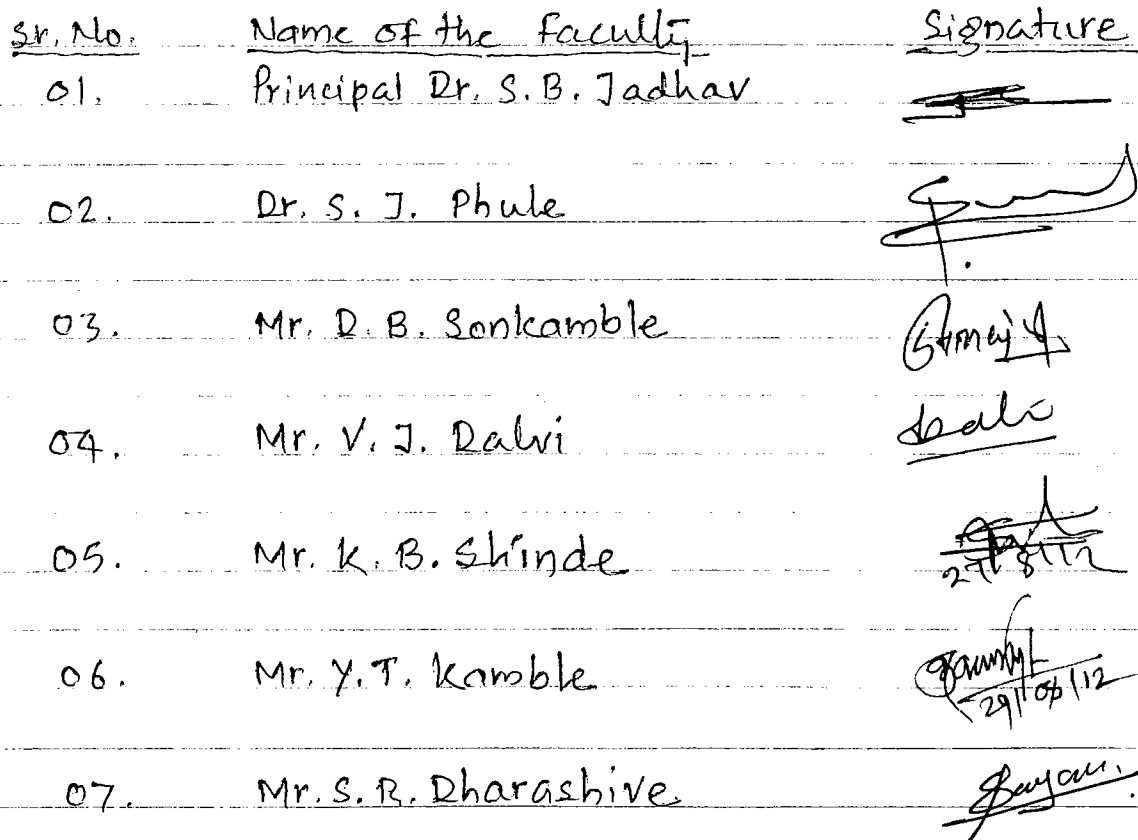 Sr. No. Name of the Faculty Signature
01. Principal Dr. S. B. Jadhav
02. Dr. S. J. Phule
03. Mr. D. B. Sonkamble
04. Mr. V. J. Dalvi
05. Mr. K. B. Shinde
27/8/12
06. Mr. Y. T. Kamble
29/08/12
07. Mr. S. R. Dharashive